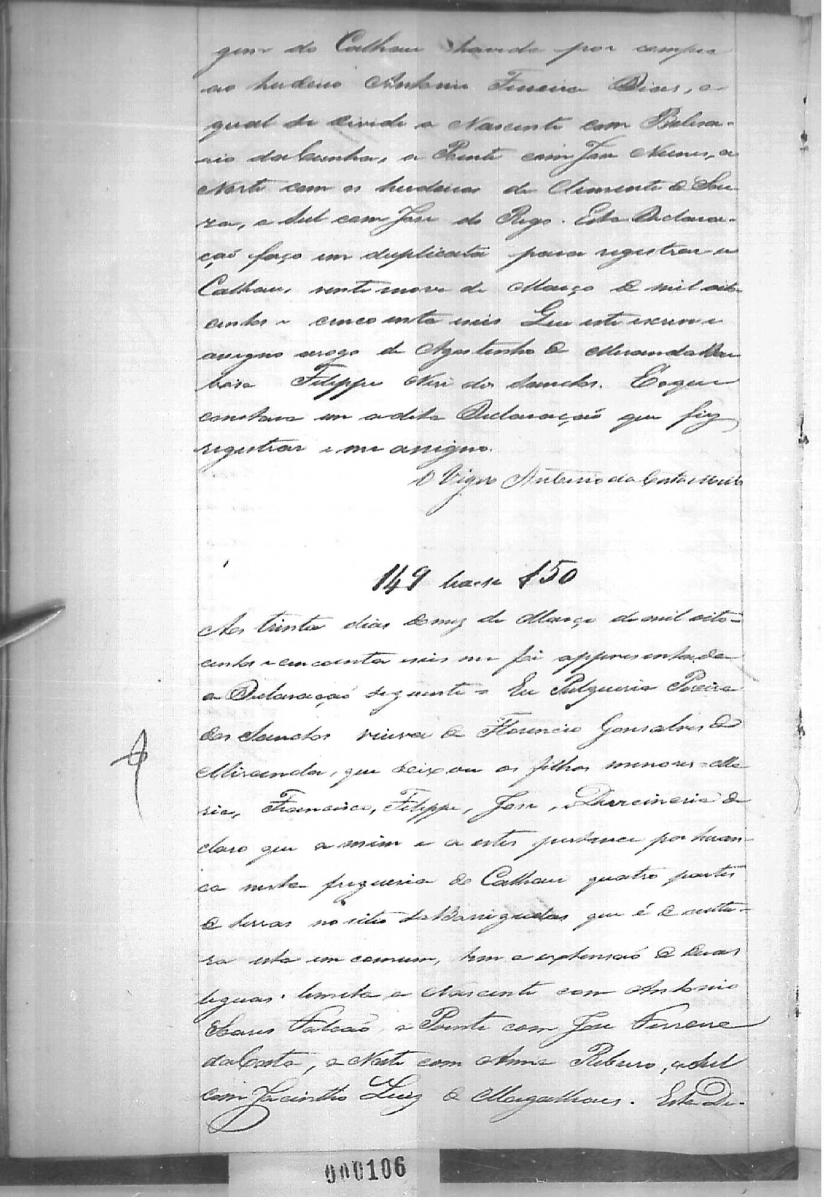 guesia do Calhau havida por compra
ao herdeiro Antonio Ferreira Dias, a
qual se divide a Nascente com Belisa-
rio da Cunha, a Poente com Jose Nunes, a
Norte com os herdeiros de Clemente de Sou-
za, e Sul com Jose do Rego. Esta Declara-
ção faço em duplicata para registrar-se
Calhau, vinte nove de Março de mil oito
centos e cincoenta seis Que este escrevi e
assigno arogo de Agostinho de Miranda Bar
boza Filippe Neri dos Sanctos. E o que
constava em a dita Declaração que fiz
registrar e me assigno.
O Vigro Antonio da Costa
149 150
Aos trinta dias do mez de Março de mil oito-
centos e cincoenta seis me foi appresentada
a Declaração seguinte = Eu Pulqueria Pereira
dos Sanctos viuva de Florencio Gonsalves de
Miranda, que deixou os filhos menores = Ma
ria, Francisca, Filippe, Jose, de
claro que a mim e a estes pertence por heran-
ca nesta freguezia do Calhau quatro partes
de terras no sitio das Barrigudas que é de cultu-
ra esta em comum, tem a extensão de duas
leguas. limita a Nascente com Antonio
Soares Falcão, a Poente com Jose Ferreira
da Costa, a Norte com Anna Ribeiro, a Sul
com Jacintho Luiz de Magalhaes. Esta De-
000106